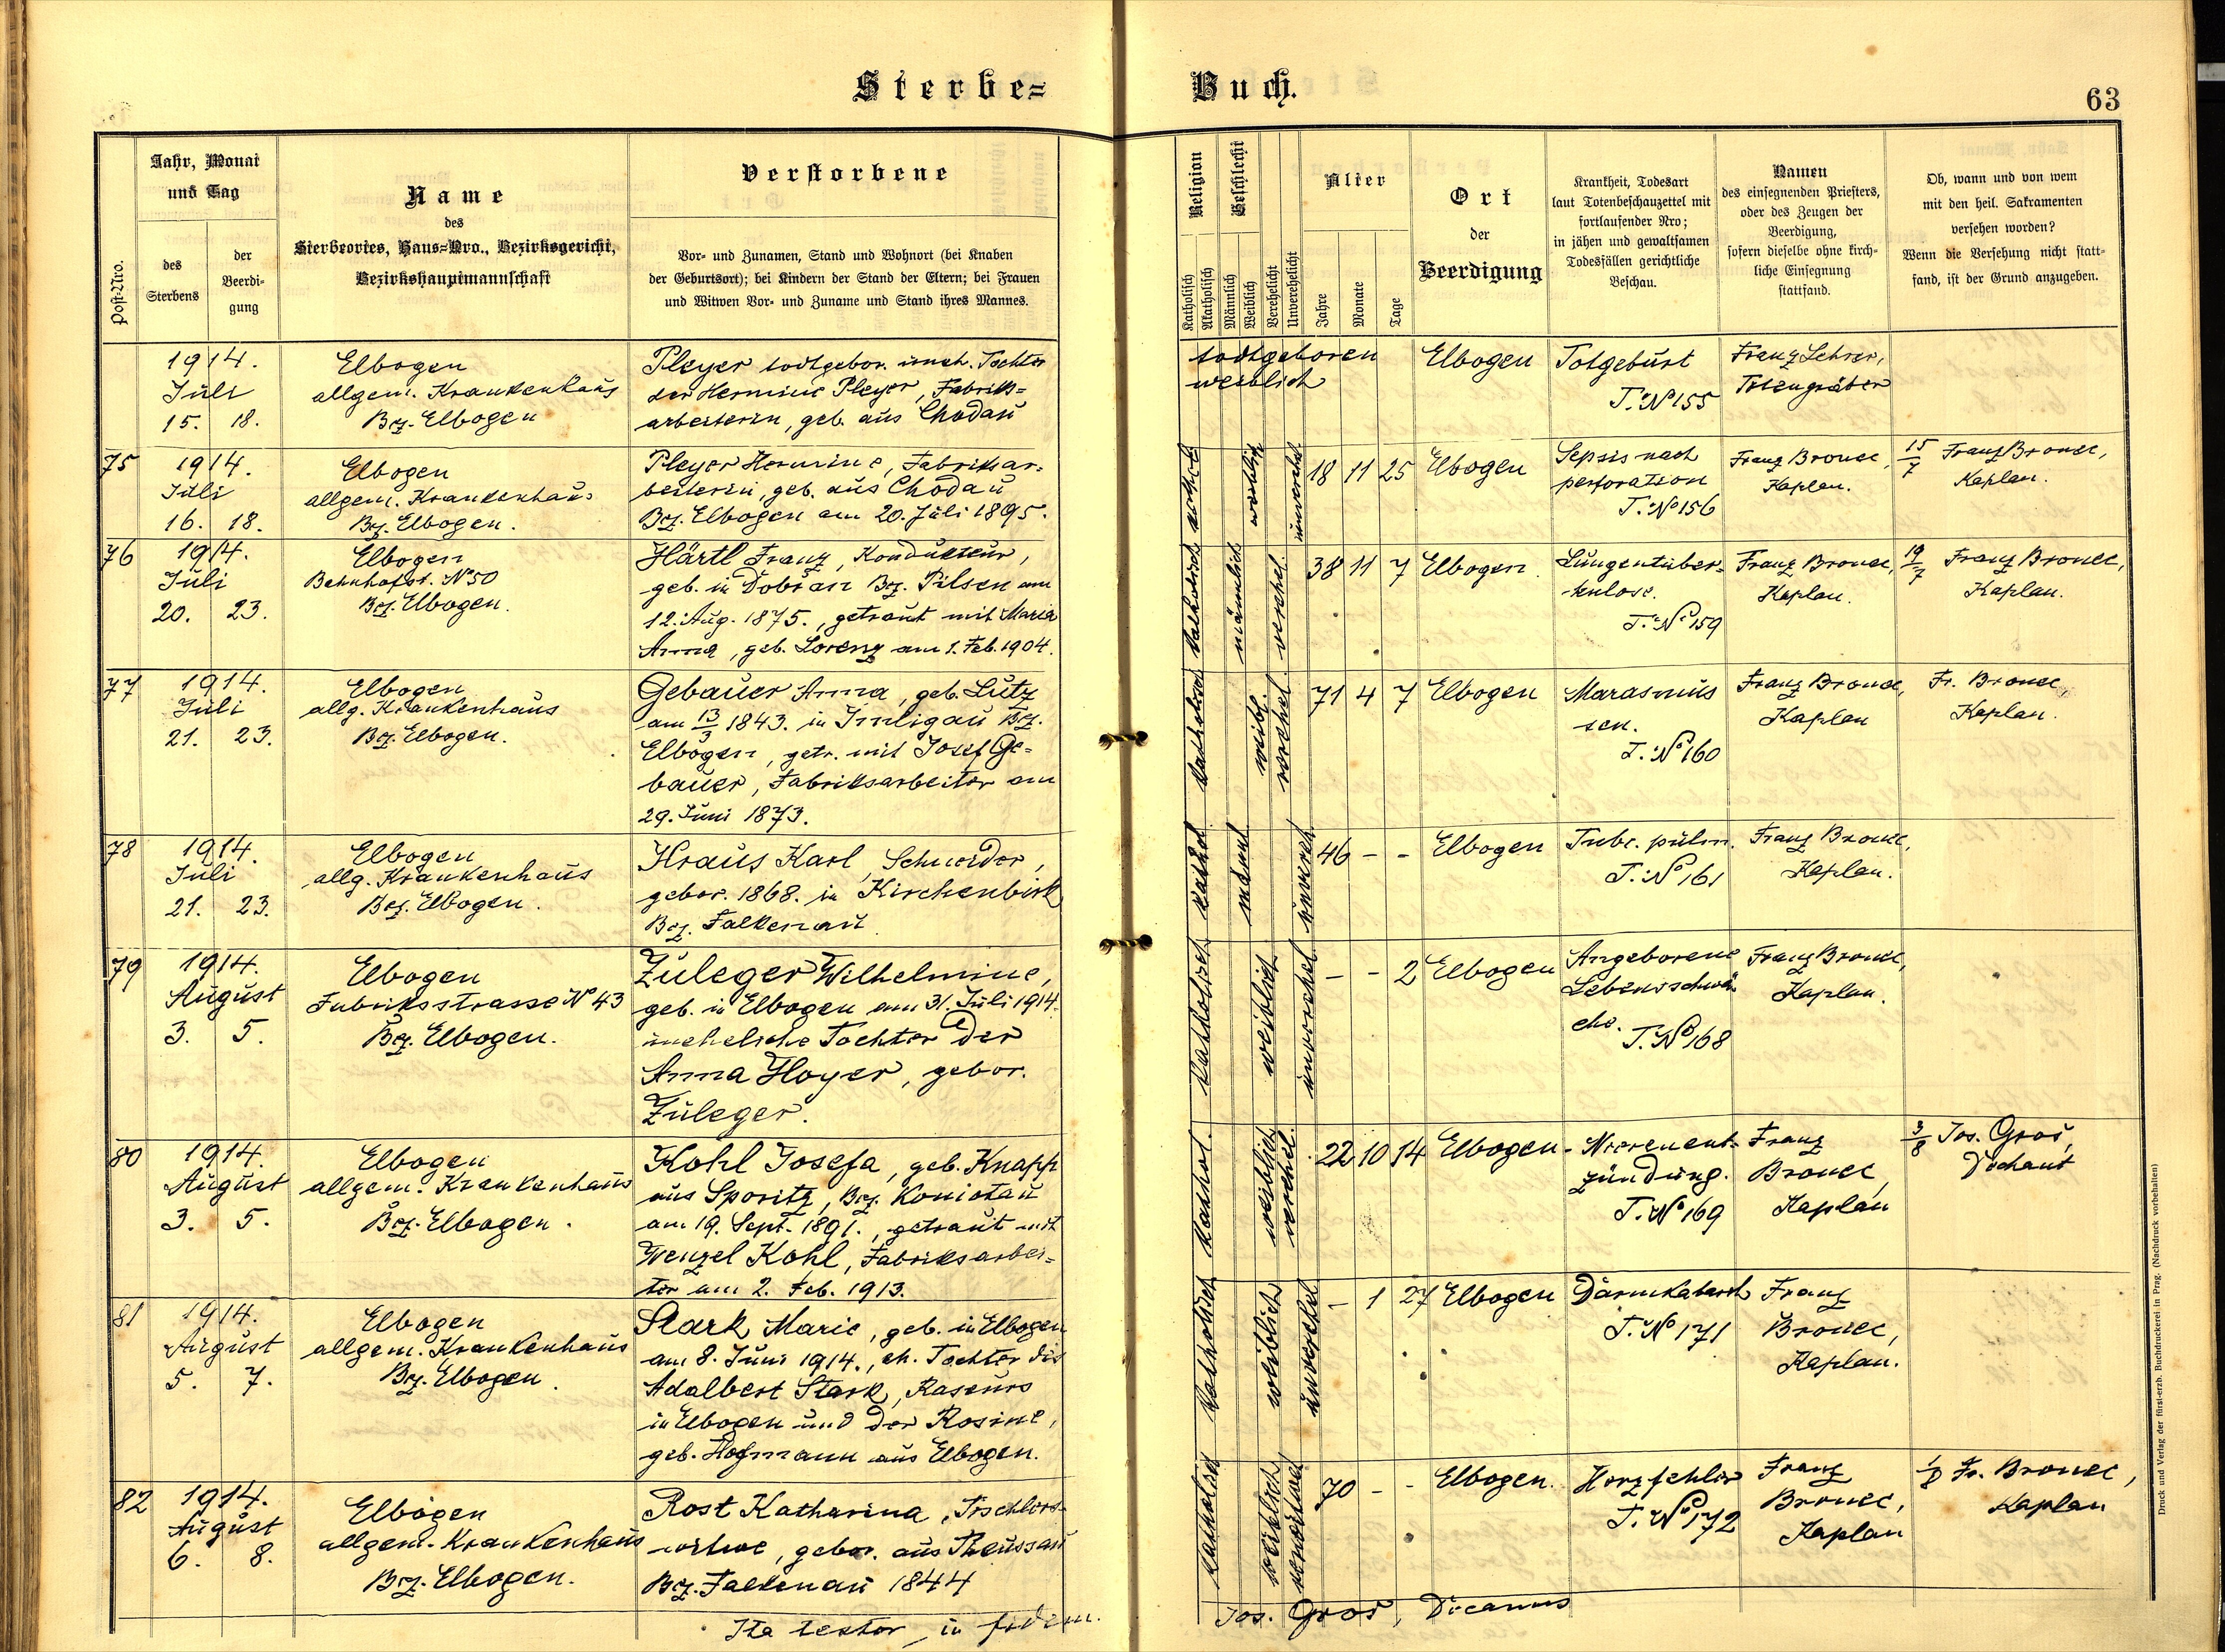 Sterbe=
Buch.
63
Post-Nro.
Jahr, Monat
und Tag
des
Sterbens
der
Beerdi-
gung
Name
des
Sterbeortes, Haus=Nro., Bezirksgericht,
Bezirkshauptmannschaft
Verstorbene
Vor- und Zunamen, Stand und Wohnort (bei Knaben
der Geburtsort); bei Kindern der Stand der Eltern; bei Frauen
und Witwen Vor- und Zuname und Stand ihres Mannes.
Religion
Katholisch
Akatholisch
Geschlecht
Männlich
Weiblich
Verehelicht
Unverehelicht
Alter
Jahre
Monate
Tage
Ort
der
Beerdigung
Krankheit, Todesart
laut Totenbeschauzettel mit
fortlaufender Nro;
in jähen und gewaltsamen
Todesfällen gerichtliche
Beschau.
Namen
des einsegnenden Priesters,
oder des Zeugen der
Beerdigung,
sofern dieselbe ohne kirch-
liche Einsegnung
stattfand.
Ob, wann und von wem
mit den heil. Sakramenten
versehen worden?
Wenn die Versehung nicht statt-
fand, ist der Grund anzugeben.
1914.
Juli
15. 18.
Elbogen
allgem. Krankenhaus
Bez. Elbogen
Pleyer todtgebor. uneh. Tochter
der Hermine Pleyer, Fabriks=
arbeiterin, geb. aus Chodau
todtgeboren
weiblich
Elbogen
Totgeburt
T. No 155
Franz Lehrer,
Totengräber
75
1914.
Juli
16. 18.
Elbogen
allgem. Krankenhaus
Bez. Elbogen.
Pleyer Hermine, Fabriksar-
beiterin, geb. aus Chodau
Bez. Elbogen am 20. Juli 1895.
kathol.
weiblich
unverehel.
18 11 25
Elbogen
Sepsis nach
perforation
T. No 156
Franz Bronec,
Kaplan.
15/7 Franz Bronec,
Kaplan.
76
1914.
Juli
20. 23.
Elbogen
Bahnhofst. No 50
Bez. Elbogen.
Härtl Franz, Kondukteur,
geb. in Dobřan Bez. Pilsen am
12. Aug. 1875., getraut mit Maria
Anna, geb. Lorenz am 1. Feb. 1904.
katholisch
männlich
verehel.
38 11 7
Elbogen.
Lungentuber-
kulose.
T. No 159
Franz Bronec,
Kaplan.
19/7 Franz Bronec,
Kaplan.
77
1914.
Juli
21. 23.
Elbogen
allg. Krankenhaus
Bez. Elbogen.
Gebauer Anna, geb. Lutz
am 13/3 1843. in Imligau Bez.
Elbogen, getr. mit Josef Ge=
bauer, Fabriksarbeiter am
29. Juni 1873.
katholisch
weibl.
verehel.
71 4 7
Elbogen
Marasmus
sen.
T. No 160
Franz Bronec,
Kaplan
Fr. Bronec,
Kaplan.
78
1914.
Juli
21. 23.
Elbogen
allg. Krankenhaus
Bez. Elbogen.
Kraus Karl, Schneider,
gebor. 1868. in Kirchenbirk
Bez. Falkenau.
kathol.
männl.
unvereh.
46 - -
Elbogen
Tube. pulm.
T. No 161
Franz Bronec,
Kaplan.
79
1914.
August
3. 5.
Elbogen
Fabriksstrasse No 43
Bez. Elbogen.
Zuleger Wilhelmine,
geb. in Elbogen am 31. Juli 1914.
uneheliche Tochter der
Anna Hoyer, gebor.
Zuleger.
katholisch
weiblich
unverehel.
- - 2
Elbogen
Angeborene
Lebensschwä-
che.
T. No 168
Franz Bronec,
Kaplan.
80
1914.
August
3. 5.
Elbogen
allgem. Krankenhaus
Bez. Elbogen.
Kohl Josefa, geb. Knapp
aus Sporitz, Bez. Komotau
am 19. Sept. 1891., getraut mit
Wenzel Kohl, Fabriksarbei=
ter am 2. Feb. 1913.
kathol.
weiblich
verehel.
22 10 14
Elbogen
Nierenent-
zündung.
T. No 169
Franz
Bronec,
Kaplan
3/8 Jos. Gros,
Dechant
81
1914.
August
5. 7.
Elbogen
allgem. Krankenhaus
Bez. Elbogen.
Stark Marie, geb. in Elbogen
am 8. Juni 1914., eh. Tochter des
Adalbert Stark, Raseurs
in Elbogen und der Rosine,
geb. Hofmann aus Elbogen.
katholisch
weiblich
unverehel.
- 1 27
Elbogen
Darmkatarrh
T. No 171
Franz
Bronec,
Kaplan.
82
1914.
August
6. 8.
Elbogen
allgem. Krankenhaus
Bez. Elbogen.
Rost Katharina, Tischlers-
witwe, gebor. aus Theussau
Bez. Falkenau 1844
katholisch
weiblich
verwitwet
70 - -
Elbogen.
Herzfehler
T. No 172
Franz
Bronec,
Kaplan
1/8 Fr. Bronec,
Kaplan
Ita testor, in fidem.
Jos. Gros, Decanus
Druck und Verlag der fürst-erzb. Buchdruckerei in Prag. (Nachdruck vorbehalten)